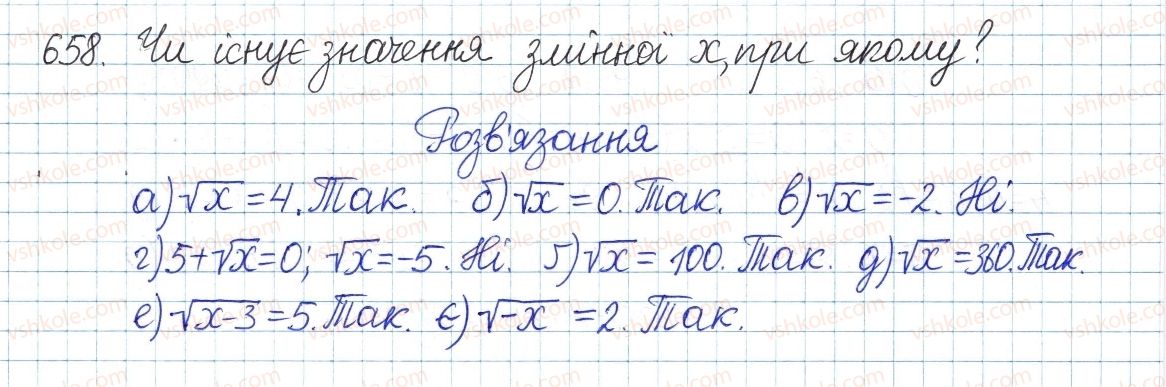 658. Чи існує значення змінної x, при якому?
Розв'язання
а) √x = 4. Так. б) √x = 0. Так. в) √x = -2. Ні.
г) 5+√x = 0; √x = -5. Ні. ґ) √x = 100. Так. д) √x = 360. Так.
е) √x-3 = 5. Так. є) √-x = 2. Так.